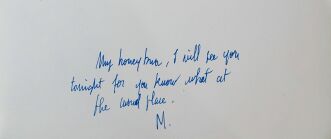 My honeybun, I will see you
tonight for you know what at
the usual place.
M.